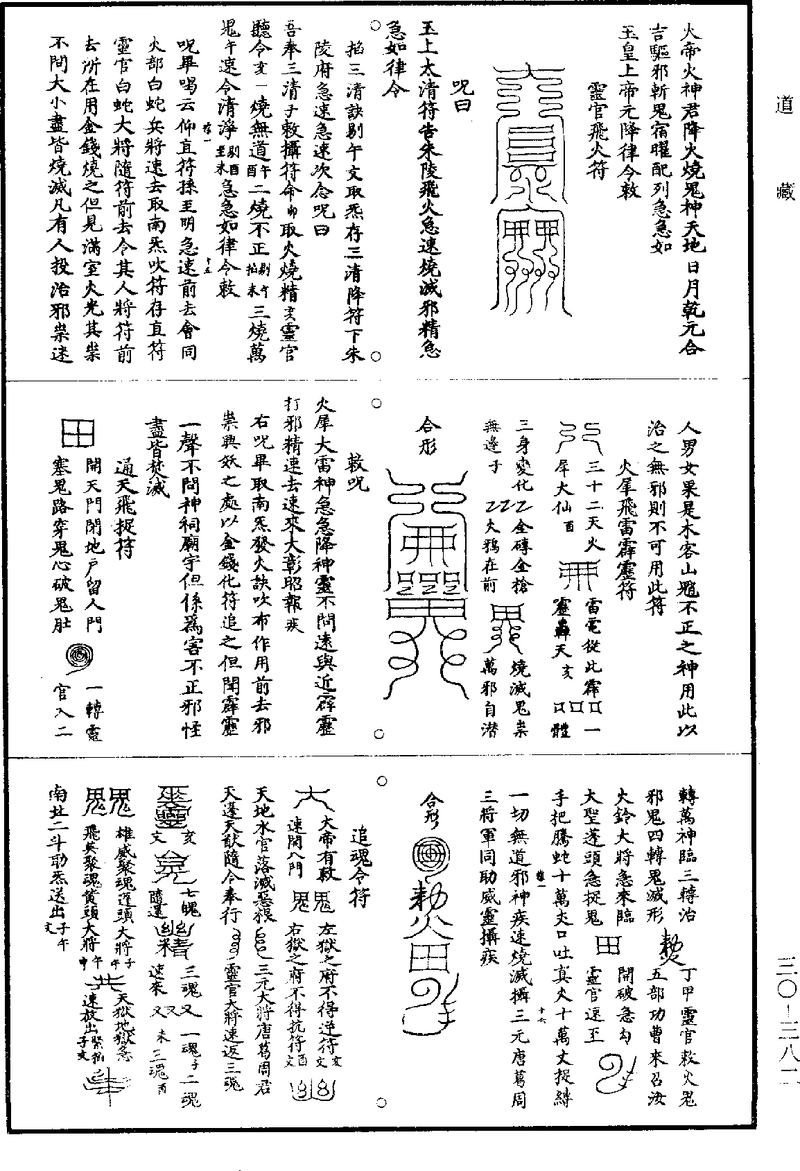 道藏
火帝火神君降火燒鬼神天地日月乾元合
吉驅邪斬鬼宿曜配列急急如
玉皇上帝元降律令敕
靈官飛火符
呪曰
玉上太清符告朱陵飛火急速燒滅邪精急
急如律令
掐三清訣剔午文取炁存三清降符下朱
陵府急速急速次念呪曰
吾奉三清子敕攝符命卯取火燒精亥靈官
聽令亥一燒無道午酉二燒不正剔午掐未三燒萬
鬼午速令清淨剔酉至未急急如律令敕
呪畢喝云仰直符捺至明急速前去會同
火部白蛇兵將速去取南炁吹符存直符
靈官白蛇大將隨符前去令其人將符前
去所在用金錢燒之但見滿室火光其祟
不問大小盡皆燒滅凡有人投治邪祟迷
人男女果是木客山魈不正之神用此以
治之無邪則不可用此符
火犀飛雷霹靂符
三十二天火 雷電從此霹
犀大仙酉 靂轟天亥 一體
三身變化 金磚金槍 燒滅鬼祟
無邊子 火鴉在前 萬邪自潛
合形
敕呪
火犀大雷神急急降神靈不問遠與近霹靂
打邪精速去速來大彰昭報疾
右呪畢取南炁發火訣吹布作用前去邪
祟與妖之處以金錢化符追之但聞霹靂
一聲不問神祠廟宇但係為害不正邪怪
盡皆焚滅
通天飛捉符
開天門閉地戶留人門 一轉靈
塞鬼路穿鬼心破鬼肚 官入二
轉萬神臨三轉治 丁甲靈官敕火鬼
邪鬼四轉鬼滅形 五部功曹來召汝
火鈴大將急來臨 開破急勾
大聖蓬頭急捉鬼 靈官逕至
手把騰蛇十萬丈口吐真火十萬丈捉縛
一切無道邪神疾速燒滅攝三元唐葛周
三將軍同助威靈攝疾
合形
追魂令符
大帝有敕 左獄之府不得逆符亥文
速開八門 右獄之府不得抗符酉文
天地水官落滅惡根 三元大將唐葛周君
天蓬天猷隨令奉行 靈官大將速返三魂
亥文 七魄隨還 三魂速來 一魂子二魂未三魂酉
雄威聚魂蓬頭大將子午 天獄地獄急
飛英聚魂黃頭大將午申 速放出
南北二斗助炁送出子午文
三〇—三八二